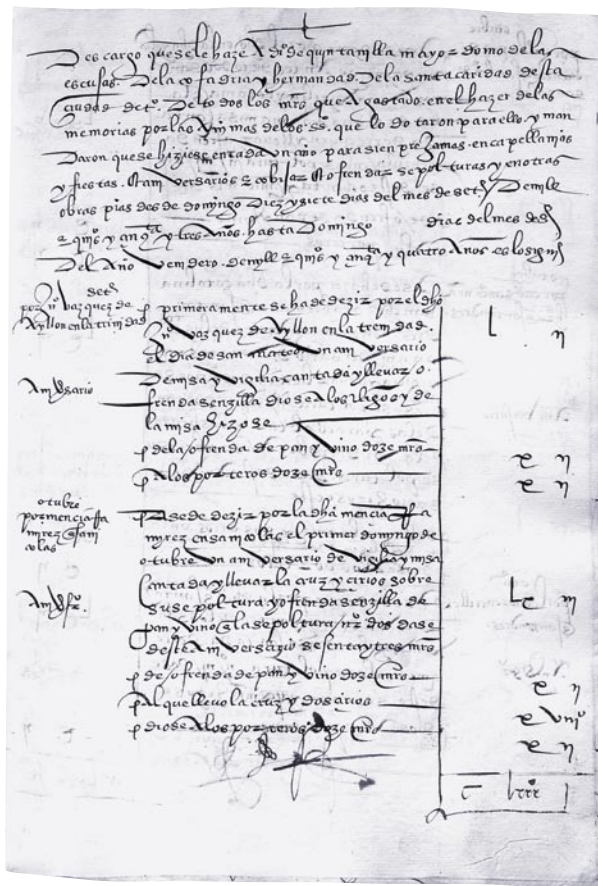 Descargo que se le haze A dº de quintanilla mayordomo de las
escusas. De la cofadria y hermandad. De la santa caridad desta
ciudad de tº. De todos los mrs que A gastado. en el hazer de las
memorias por las Animas de los sres. que lo dotaron para ello. y man
Daron que se hiziese en cada Un año para sienpre Jamas. en capellanias
y fiestas. Aniversarios obisar ofrendar sepolturas y en otras
obras pias desde domingo Diez y siete dias del mes de setº Demille
e quisº y cinqta y tres Años. hasta Domingo dias del mes de
Del Año Venidero. de mylle e quisº y cinqta y quatro Años
setº
por Vazquez de
Ayllon en la trinidad
p primeramente se ha de dezir por el dho
Vazquez de Ayllon en la trenidad.
el dia de san mateo Un aniversario
Anivsario
De misa y Vigilia cantada y llevar o
frenda senzilla diose A los clerigos y de
la misa hizose
p de la ofrenda de pan y Vino doze mrs
x ij
p A los porteros doze mrs
x ij
otubre
por mencia Ra
mirez san
colas
p A se de dezir por la dha mencia Ra
mirez en san colas el primer domingo de
otubre Un aniversario de Vigilia y misa
Cantada y llevar la cruz y cirios sobre
Anivsº.
Su sepoltura y ofrenda senzilla de
pan y Vino la sepoltura dos dase
deste AniVersario sesenta y tres mrs
p de ofrenda de pan y Vino doze mrs
x ij
p Al que llevo la cruz y dos cirios
x Viijº
p diose A los porteros doze mrs
x ij